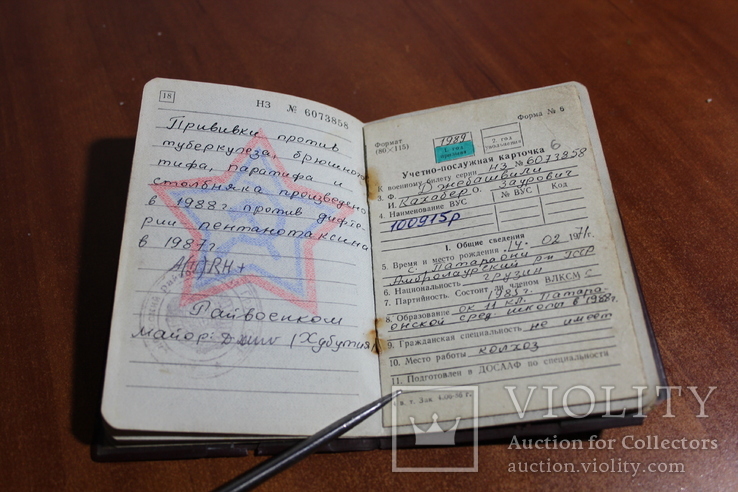 18
НЗ № 6073858
Прививки против
туберкулеза, брюшного
тифа, паратифа и
столбняка произведено
в 1988г против дифте
рии пентанотаксина
в 1987г.
A(II)RH+
Райвоенком
майор:
Форма № 6
Формат
(80×115)
1989
1. год
призыва
2. год
увольнения
Учетно-послужная карточка 6
К военному билету серии НЗ № 6073858
3. Ф. Джебашвили
И. Кахабер О. Заурович
4. Наименование ВУС
№ ВУС
Код
100915р
I. Общие сведения
5. Время и место рождения 14. 02 1971г.
с. Патараони
Амбролаурский р-н ГССР
6. Национальность грузин
7. Партийность. Состоит ли членом ВЛКСМ с
1985г.
8. Образование ок 11 кл. Патара-
онской сред школы в 1988г.
9. Гражданская специальность не имеет
10. Место работы колхоз
11. Подготовлен в ДОСААФ по специальности
VIOLITY
Auction for Collectors
auction.violity.com